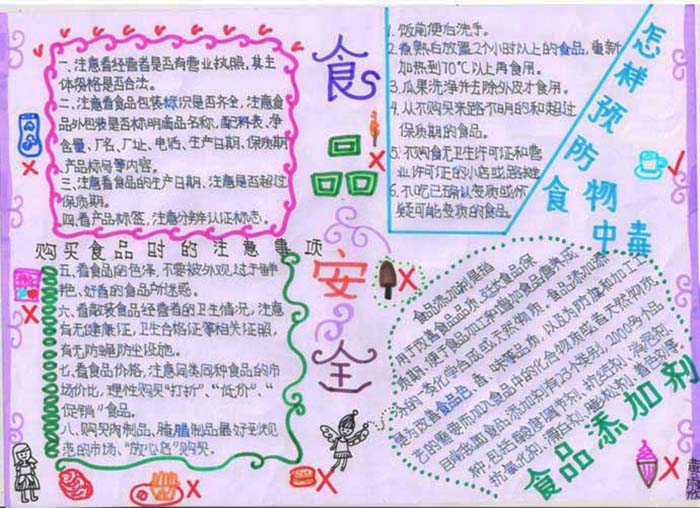 一、注意看经营者是否有营业执照,其主
体资格是否合法。
二、注意看食品包装标识是否齐全,注意食
品外包装是否标明商品名称、配料表、净
含量、厂名、厂址、电话、生产日期、保质期、
产品标号等内容。
三、注意看食品的生产日期、注意是否超过
保质期。
四、看产品标签,注意分辨认证标志。
购买食品时的注意事项
五、看食品的色泽,不要被外观,过于鲜
艳、好看的食品所迷惑。
六、看散装食品经营者的卫生情况,注意
有无健康证,卫生合格证等相关证照,
有无防蝇防尘设施。
七、看食品价格,注意同类同种食品的市
场价比,理性购买“打折”、“低价”、“
促销”食品。
八、购买肉制品、腌腊制品最好到规
范的市场、“放心店”购买。
食品安全
1. 饭前便后洗手。
2. 煮熟后放置2个小时以上的食品,重新
加热到70℃以上再食用。
3. 瓜果洗净并去除外皮才食用。
4. 从不购买来路不明的和超过
保质期的食品。
5. 不购食无卫生许可证和营
业许可证的小店或路摊
6. 不吃已确认变质或怀
疑可能变质的食品。
怎样预防食物中毒
食品添加剂是指
用于改善食品品质、延长食品保
质期、便于食品加工和增加食品营养成
分的一类化学合成或天然物质
是为改善食品色、香、味等品质,以及为防腐和加工工
艺的需要而加入食品中的化合物质或者天然物质
目前我国食品添加剂有23个类别,2000多个品
种,包括酸度调节剂、抗结剂、消泡剂、
抗氧化剂、漂白剂、膨松剂、着色剂等
食品添加剂